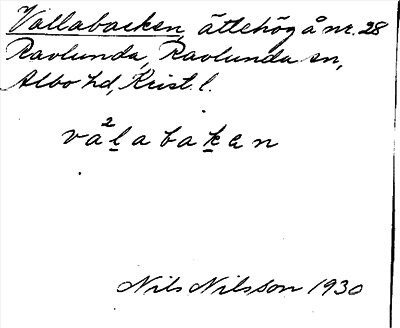 Vallabacken, ättehög å nr. 28
Ravlunda, Ravlunda sn,
Albo hd, Krist. l.
vå²labaken
Nils Nilsson 1930